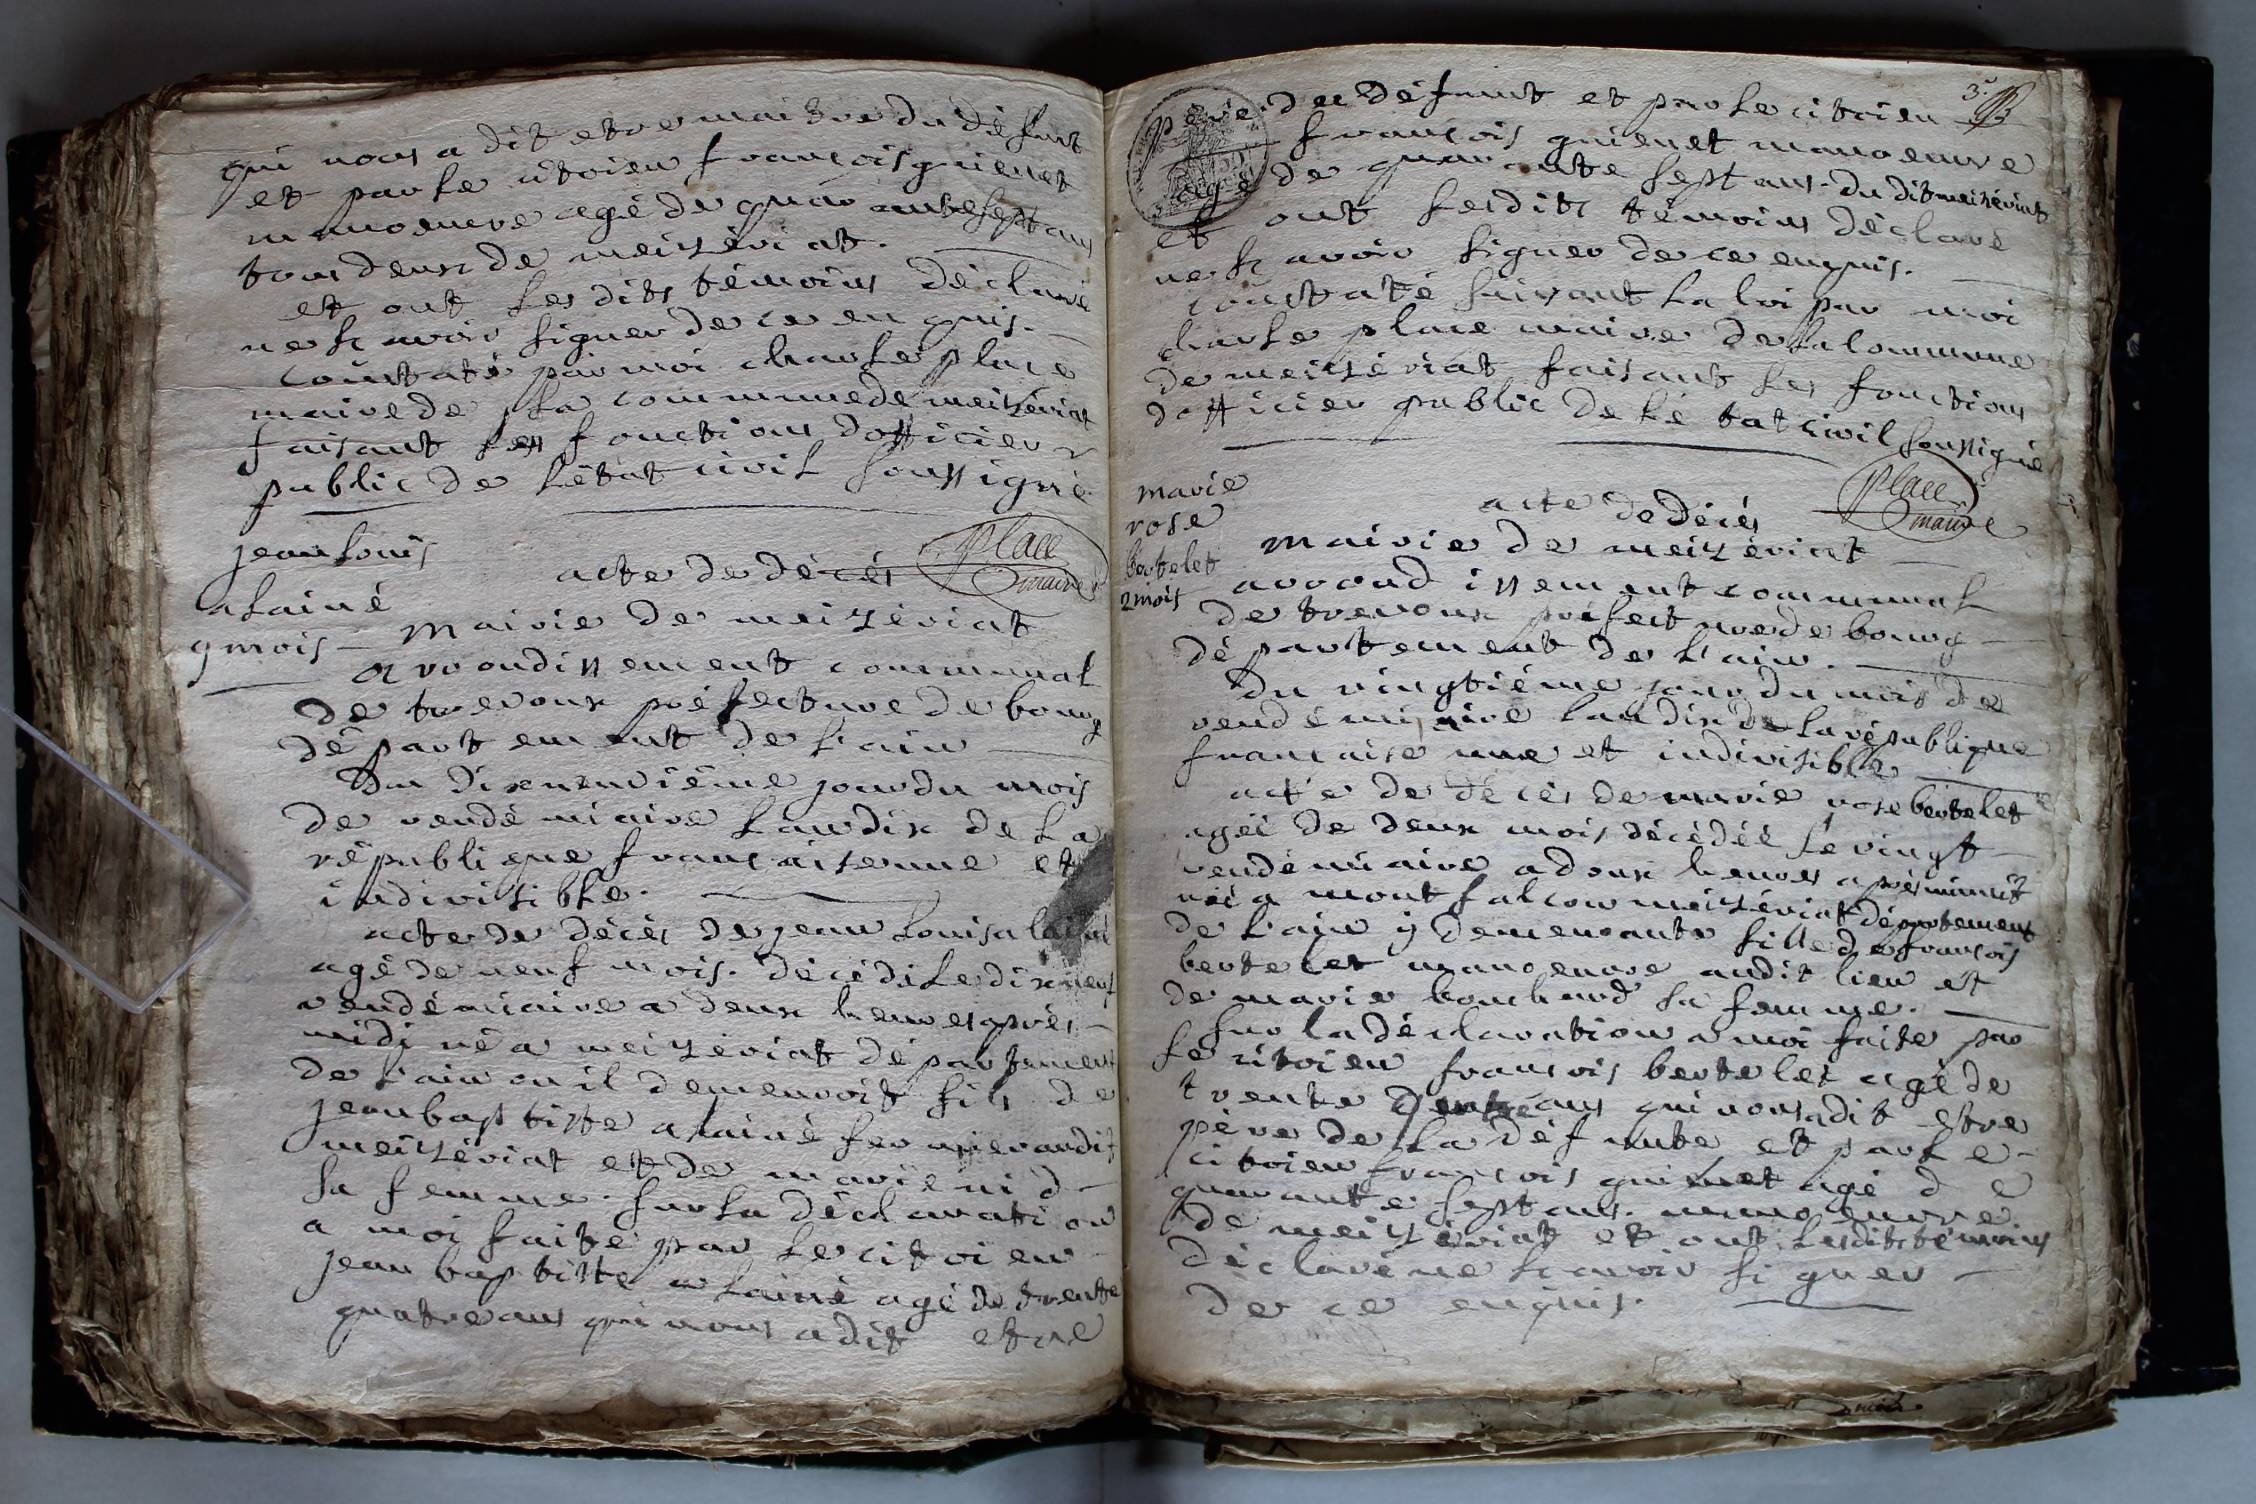 qui nous a dit etre maitre du défunt
et par le citoien françois guienet
manoeuvre agé de quarante sept ans
tous deux de meizériat.
et ont lesdits témoins déclaré
ne sçavoir signer de ce enquis.
constaté par moi charle place
maire de la commune de meizériat
faisant les fonctions dofficier
public de létat civil soussigné
place
maire
jean louis
alainé
9 mois
acte de décés
mairie de meizériat
arrondissement communal
de trevoux préfecture de bourg
département de lain
du dixneuviéme jour du mois
de vendémiaire lan dix de la
république française une et
indivisible.
acte de décés de jean louis alainé
agé de neuf mois. décédé le dixneuf
vendémiaire a deux heures après
midi né a meizériat département
de lain ou il demeuroit fils de
jean baptiste alainé fermier audit
meizériat et de marie nid
sa femme. sur la déclaration
a moi faite par le citoien
jean baptiste alainé agé de trente
quatre ans qui nous a dit etre
3.e
pére du défunt et par le citoien
françois guienet manoeuvre
agé de quarante sept ans. du dit meizériat
et ont lesdits témoins déclaré
ne sçavoir signer de ce enquis.
constaté suivant la loi par moi
charle place maire de la commune
de meizériat faisant les fonctions
dofficier public de létat civil soussigné
place
maire
marie
rose
bertelet
2 mois
acte de décés
mairie de meizériat
arrondissement communal
de trevoux préfecture de bourg
département de lain.
du vingtiéme jour du mois de
vendémiaire lan dix de la république
française une et indivisible
acte de décés de marie rose bertelet
agéé de deux mois décédéé le vingt
vendémiaire a deux heures après minuit
néé a montfalcon meizériat département
de lain y demeurante fille de françois
bertelet manoeuvre audit lieu et
de marie bouchard sa femme.
sur la déclaration a moi faite par
le citoien françois bertelet agé de
trente ans qui nous a dit estre
père de la défunte et par le
citoien françois guienet agé de
quarante sept ans. manoeuvre
de meizériat et ont lesdits témoins
déclaré ne sçavoir signer
de ce enquis.